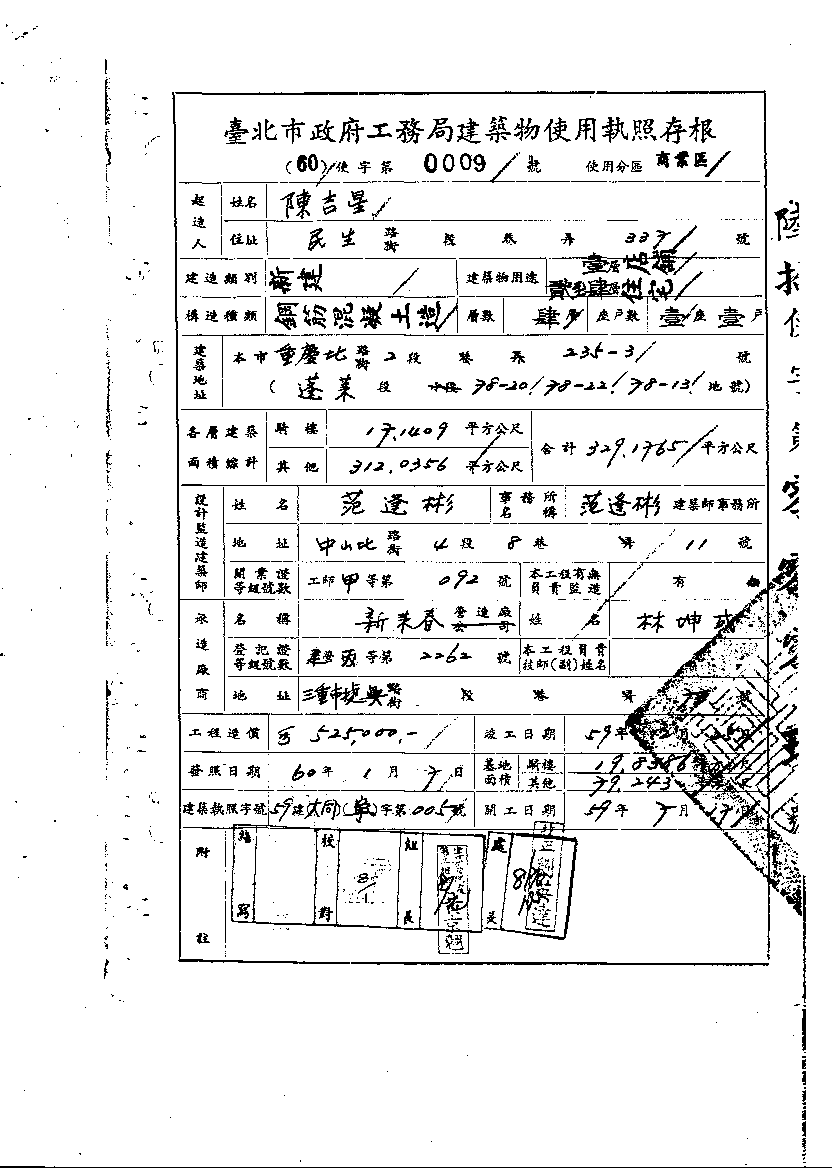 臺北市政府工務局建築物使用執照存根
(60)使字第 0009 號 使用分區 商業區
起造人 姓名 陳吉星
住址 民生 路街 段 巷 弄 337 號
建造類別 新建 建築物用途 壹層店舖 貳至肆層住宅
構造種類 鋼筋混凝土造 層數 肆層 座戶數 壹座壹戶
建築地址 本市重慶北路街2段 巷 弄 235-3 號
(蓬萊段 小段 78-20 78-22 78-13 地號)
各層建築面積總計 騎樓 17.1409 平方公尺 合計 329.1765 平方公尺
其他 312.0356 平方公尺
設計監造建築師 姓名 范逢彬 事務所名稱 范逢彬 建築師事務所
地址 中山北路街 4段 8巷 弄 11 號
開業證等級號數 工師甲等第 092 號 本工程有無負責監造 有
承造廠商 名稱 新萊春 營造廠公司 姓名 林坤
登記證等級號數 等第 2262 號 本工程負責技師(副)姓名
地址 三重市 路街 段 巷 弄 號
工程造價 525,000.- 竣工日期 59年12月25日
發照日期 60年1月7日 基地面積 騎樓 19.8386
其他 79.243
建築執照字號 59建大同()字第005號 開工日期 59年7月
附註 繕寫 校對 組長 處長